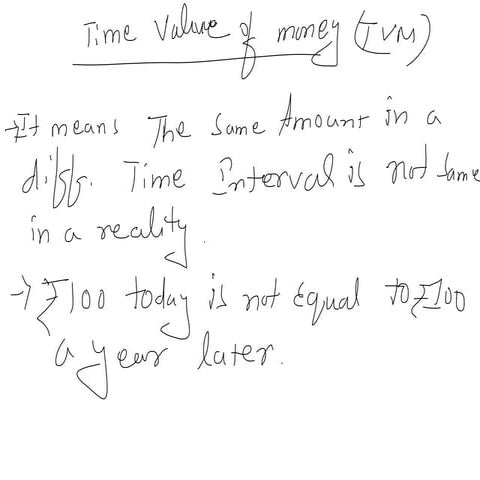 Time Value of money (TVM)
→It means The Same Amount in a
diff. Time Interval is not same
in a reality.
→ ₹100 today is not equal to ₹100
a year later.